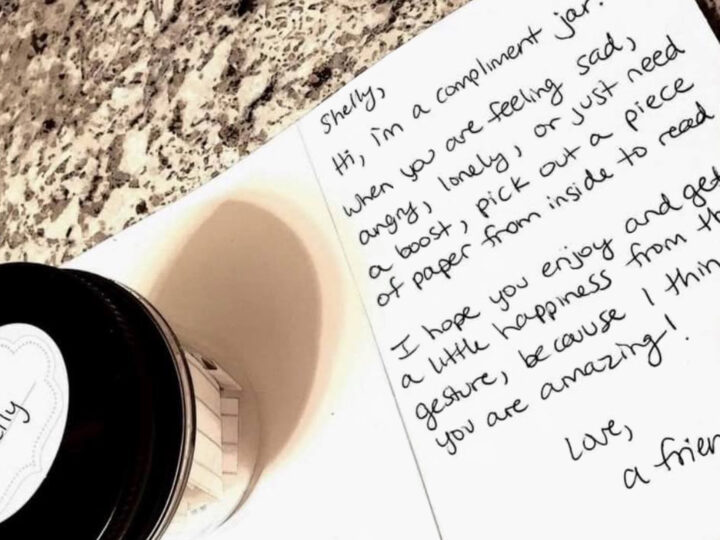 Shelly,
Hi, i'm a compliment jar.
When you are feeling sad,
angry, lonely, or just need
a boost, pick out a piece
of paper from inside to read
I hope you enjoy and get
a little happiness from th
gesture, because I thin
you are amazing!
Love,
a frien
elly